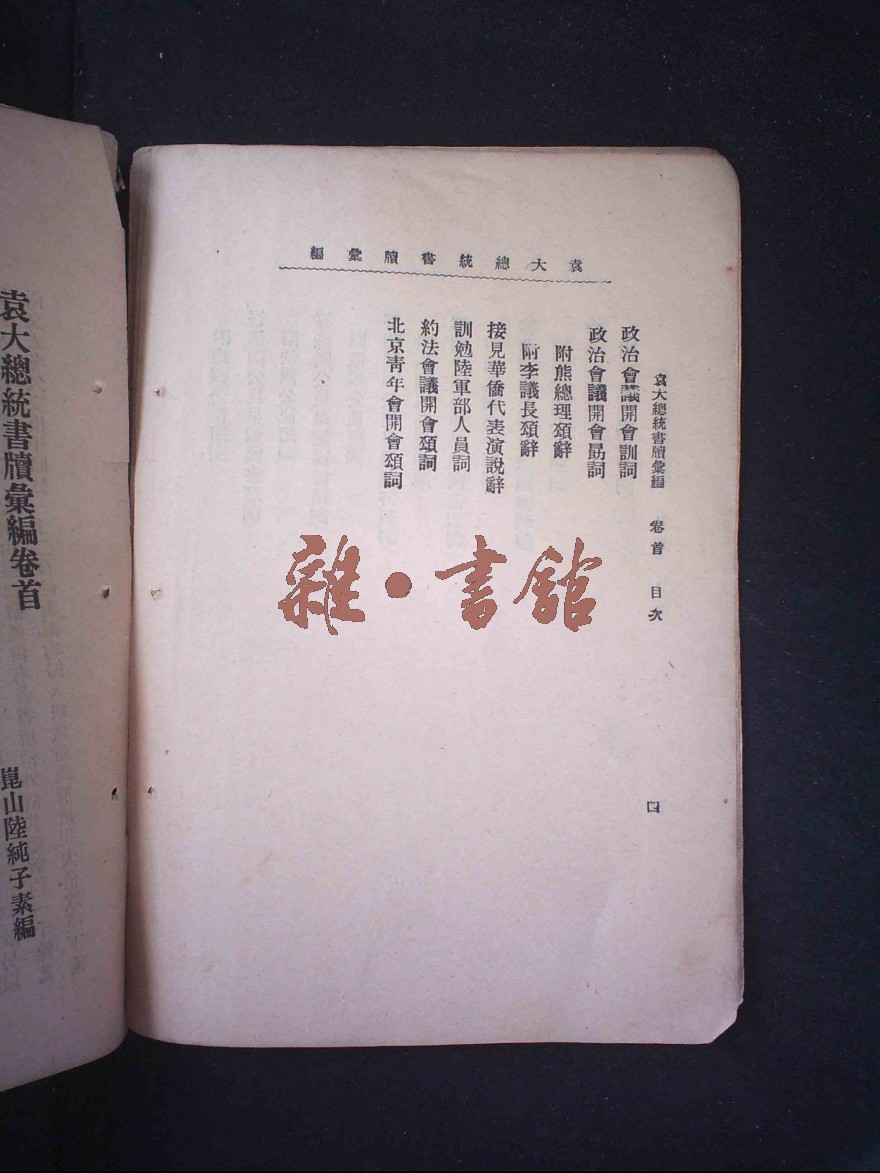 袁大總統書牘彙編
袁大總統書牘彙編 卷首 目次 四
政治會議開會訓詞
政治會議開會勗詞
附熊總理頌辭
附李議長頌辭
接見華僑代表演說辭
訓勉陸軍部人員詞
約法會議開會頌詞
北京靑年會開會頌詞
雜·書館
袁大總統書牘彙編卷首
崑山陸純子素編